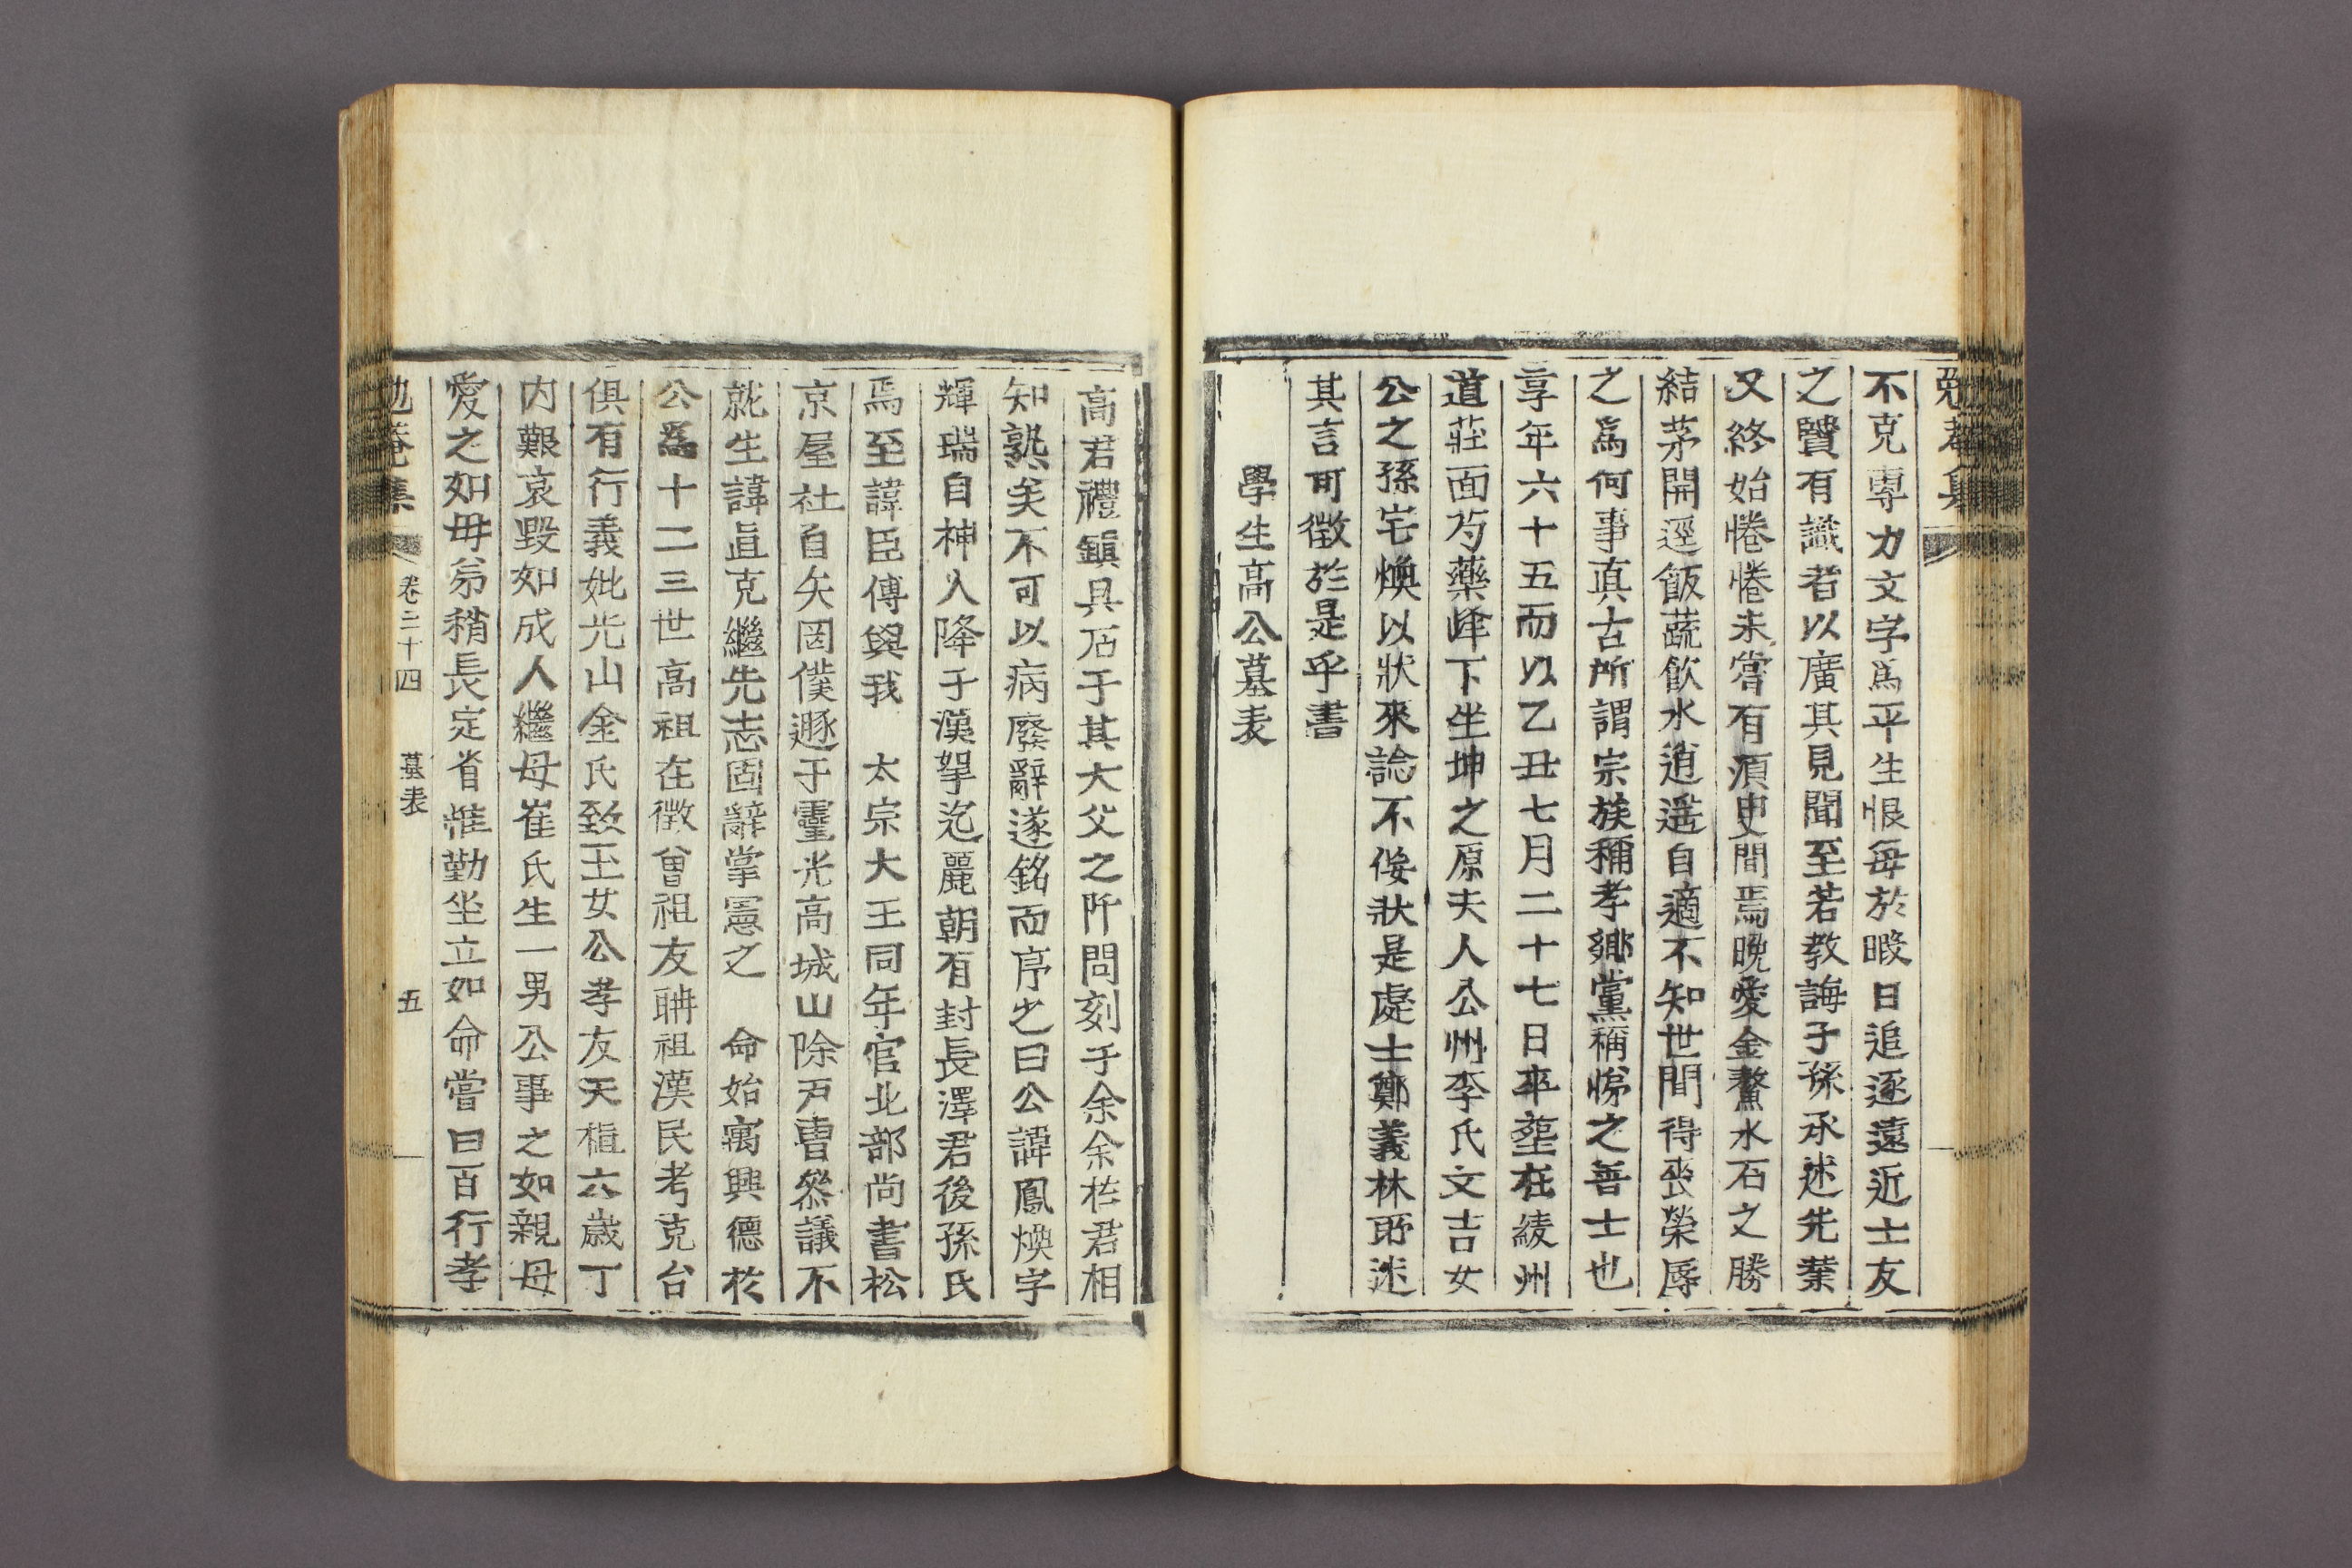 勉菴集
不克專力文字爲平生恨每於暇日追逐遠近士友
之賢有識者以廣其見聞至若敎誨子孫承述先業
又終始惓惓未嘗有須臾間焉晩愛金鰲水石之勝
結茅開逕飯蔬飮水逍遥自適不知世間得喪榮辱
之爲何事眞古所謂宗族稱孝鄕黨稱悌之善士也
享年六十五而以乙丑七月二十七日卒塟在綾州
道莊面芍藥峰下坐坤之原夫人公州李氏文吉女
公之孫宅煥以狀來諗不佞狀是處士鄭義林所述
其言可徵於是乎書
學生高公墓表
高君禮鎭具石于其大父之阡問刻于余余於君相
知熟矣不可以病廢辭遂銘而序之曰公諱鳳煥字
輝瑞自神人降于漢拏迄麗朝有封長澤君後孫氏
焉至諱臣傅與我　太宗大王同年官北部尙書松
京屋社自矢罔僕遯于靈光高城山除戸曹叅議不
就生諱直克繼先志固辭掌憲之　命始寓興德於
公爲十二三世高祖在徵曾祖友聃祖漢民考克台
俱有行義妣光山金氏致玉女公孝友天植六歲丁
内艱哀毀如成人繼母崔氏生一男公事之如親母
愛之如母弟稍長定省惟勤坐立如命嘗曰百行孝
勉菴集　卷三十四　墓表　五